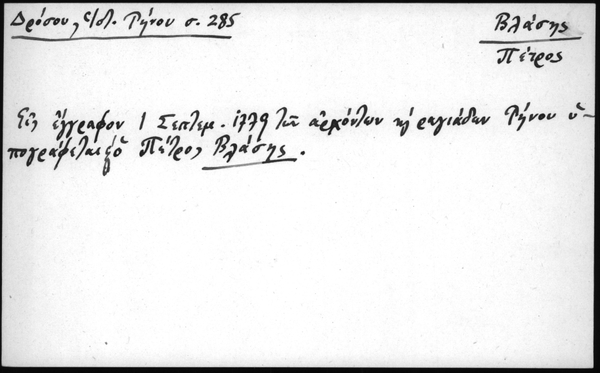 Δρόσου, Ἱστ. Τήνου σ. 285
Βλάσης
Πέτρος
Εἰς ἔγγραφον 1 Σεπτεμ. 1779 τῶν ἀρχόντων κ ραγιάδων Τήνου ὑ-
πογράφεται ὁ Πέτρος Βλάσης.